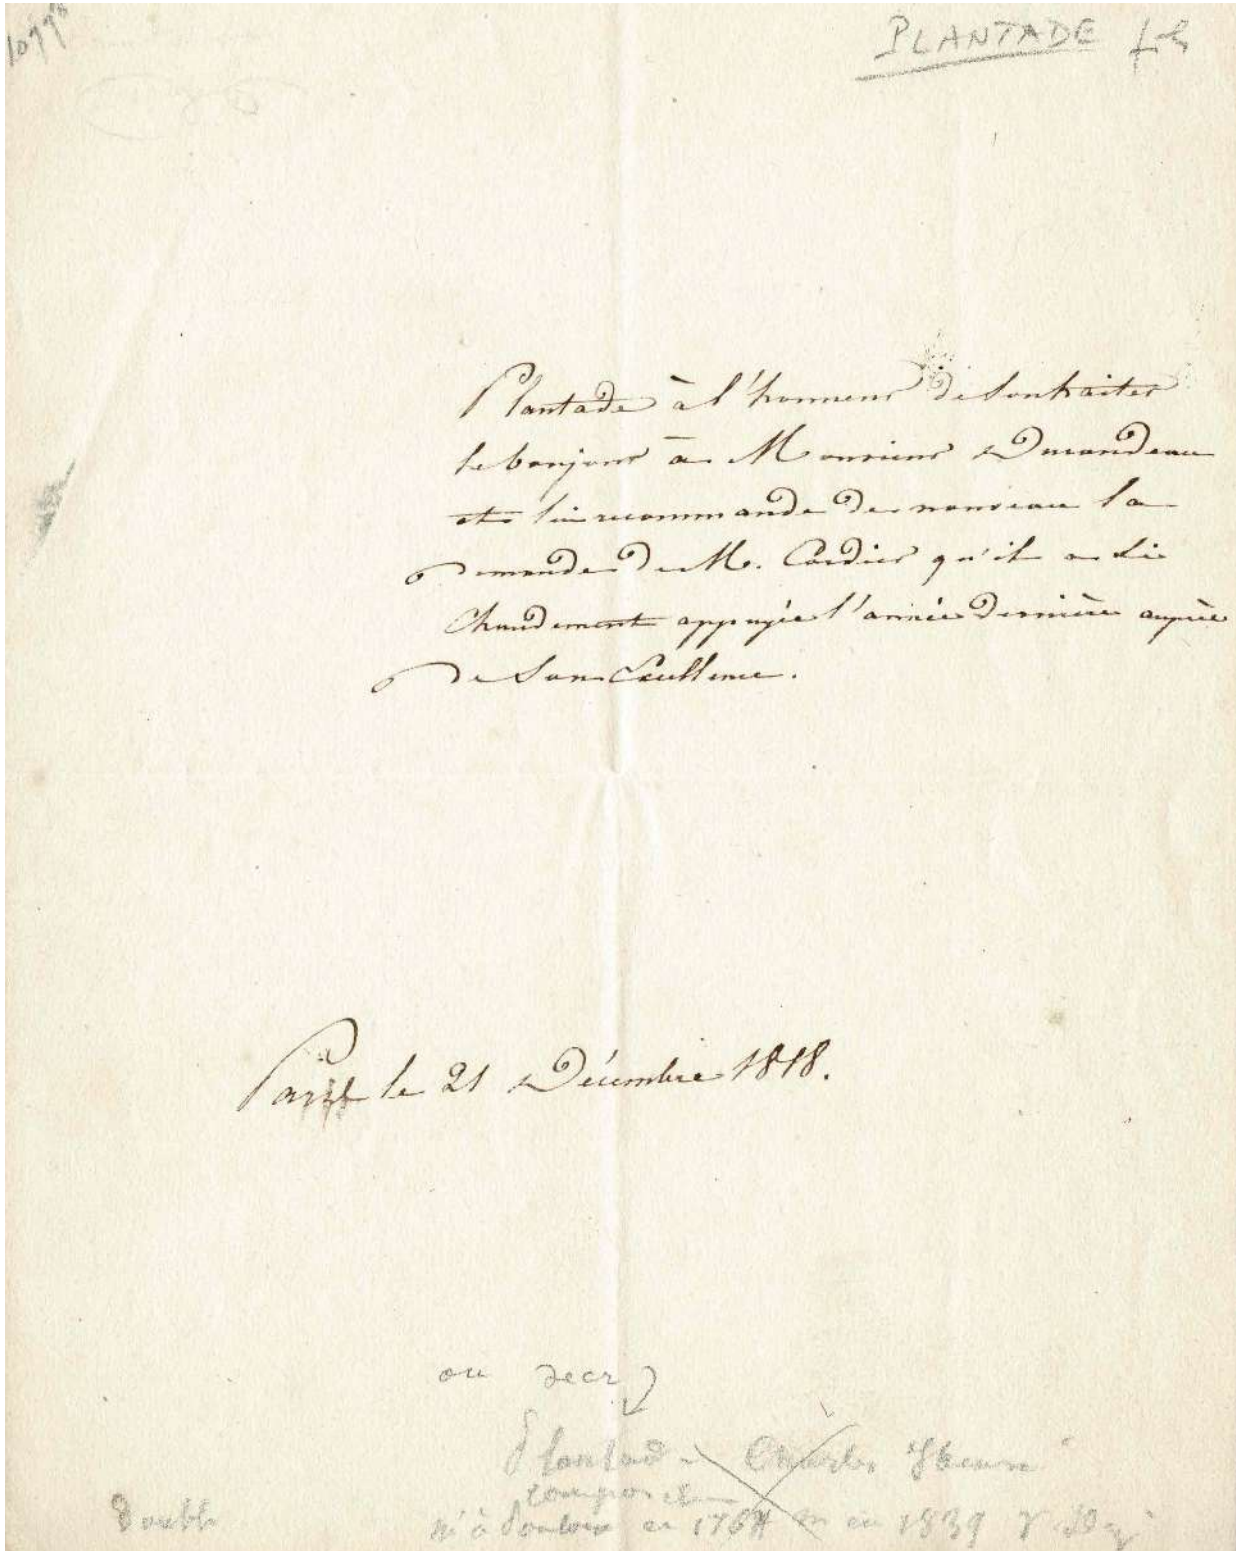 PLANTADE
Plantade à l'honneur de souhaiter
le bonjour à Monsieur Durandeau
et lui recommande de nouveau la
demande de M. Cordier qu'il a si
chaudement appuyée l'année dernière auprès
de Son Excellence.
Paris le 21 Décembre 1818.
ou decr
Plantade Charles Henri
compositeur
né à Pontoise en 1764 m en 1839
Double